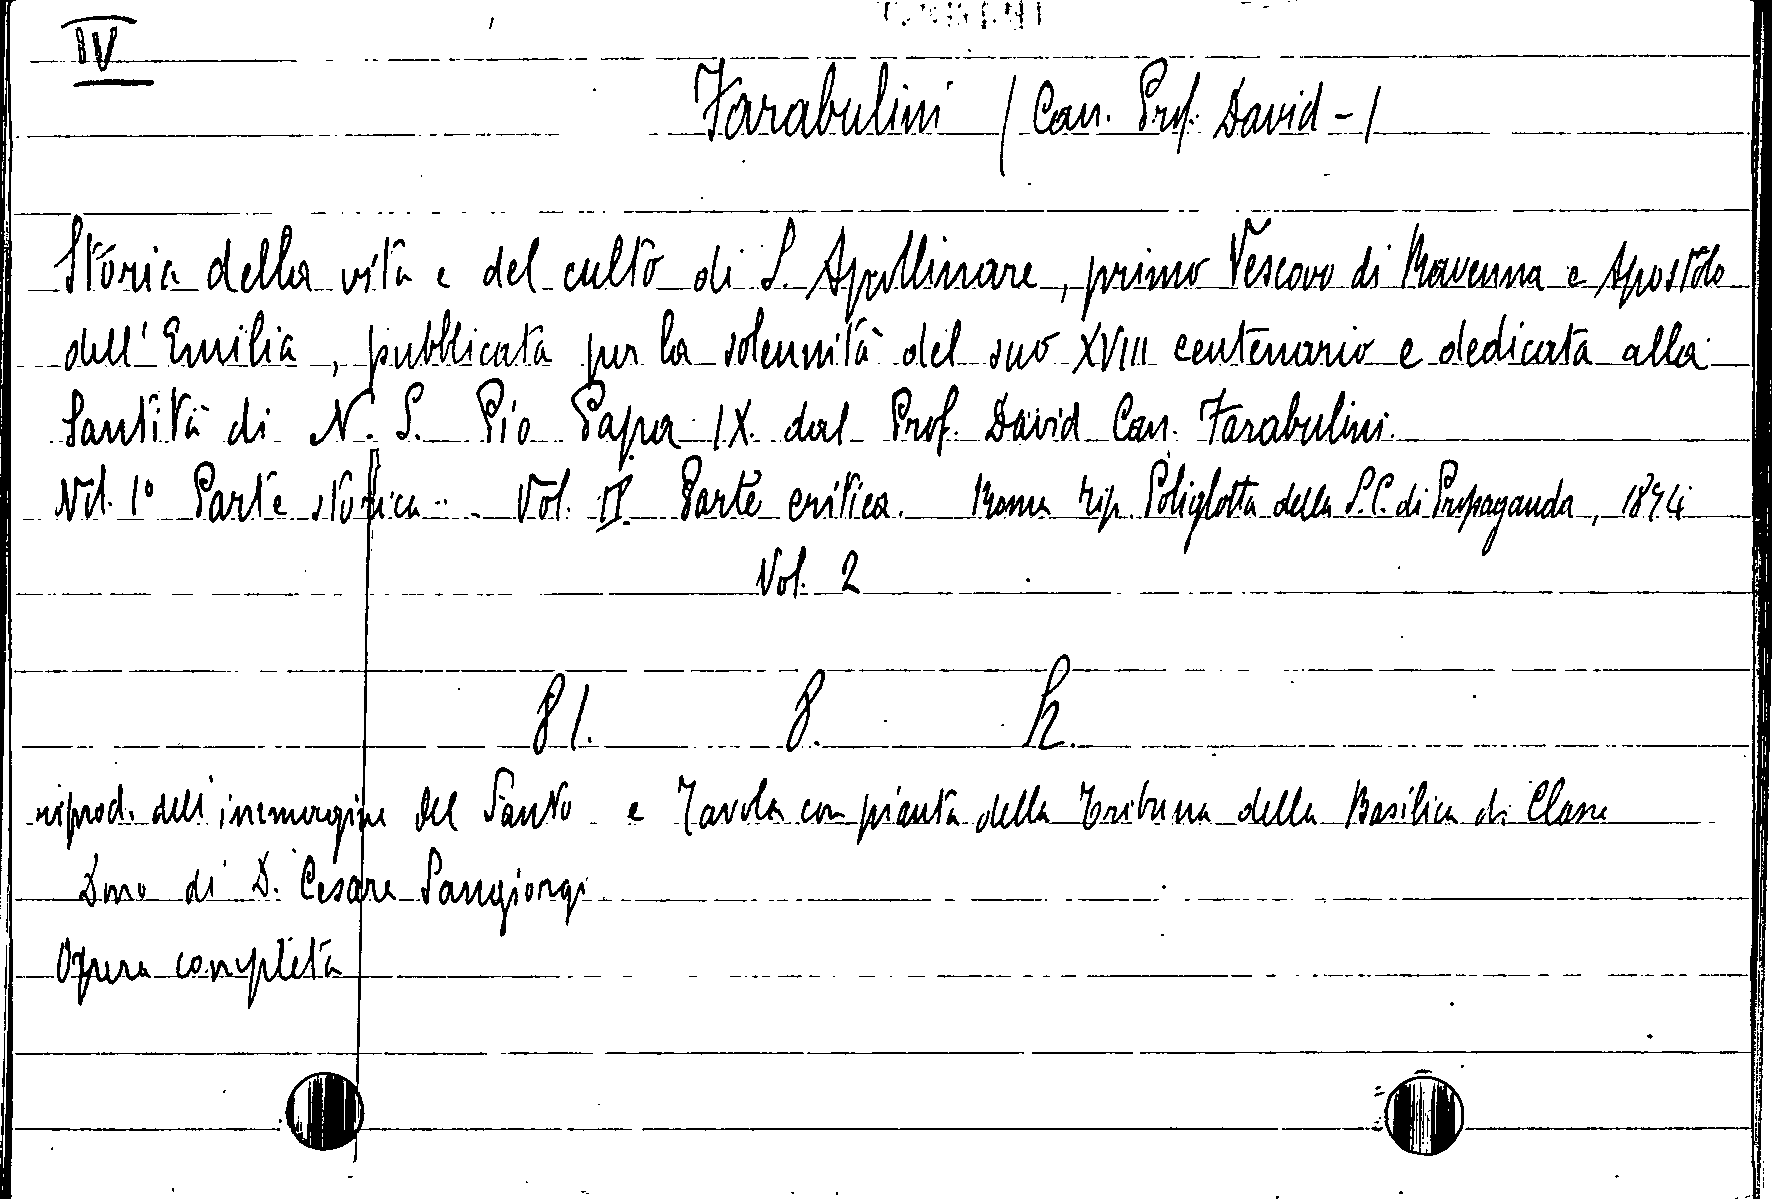 IV
Farabulini (Can. Prof. David - )
Storia della vita e del culto di S. Apollinare, primo Vescovo di Ravenna e Apostolo
dell'Emilia, pubblicata per la solennità del suo XVIII centenario e dedicata alla
Santità di N. S. Pio Papa IX. dal Prof. David Can. Farabulini.
Vol. 1° Parte storica - Vol. II. Parte critica. Roma Tip. Poliglotta della S.C. di Propaganda, 1874
Vol. 2
81. 8. K.
riprod. dell'immagine del Santo e Tavola con pianta della Tribuna della Basilica di Classe
Dono di D. Cesare Sangiorgi
Opera completa